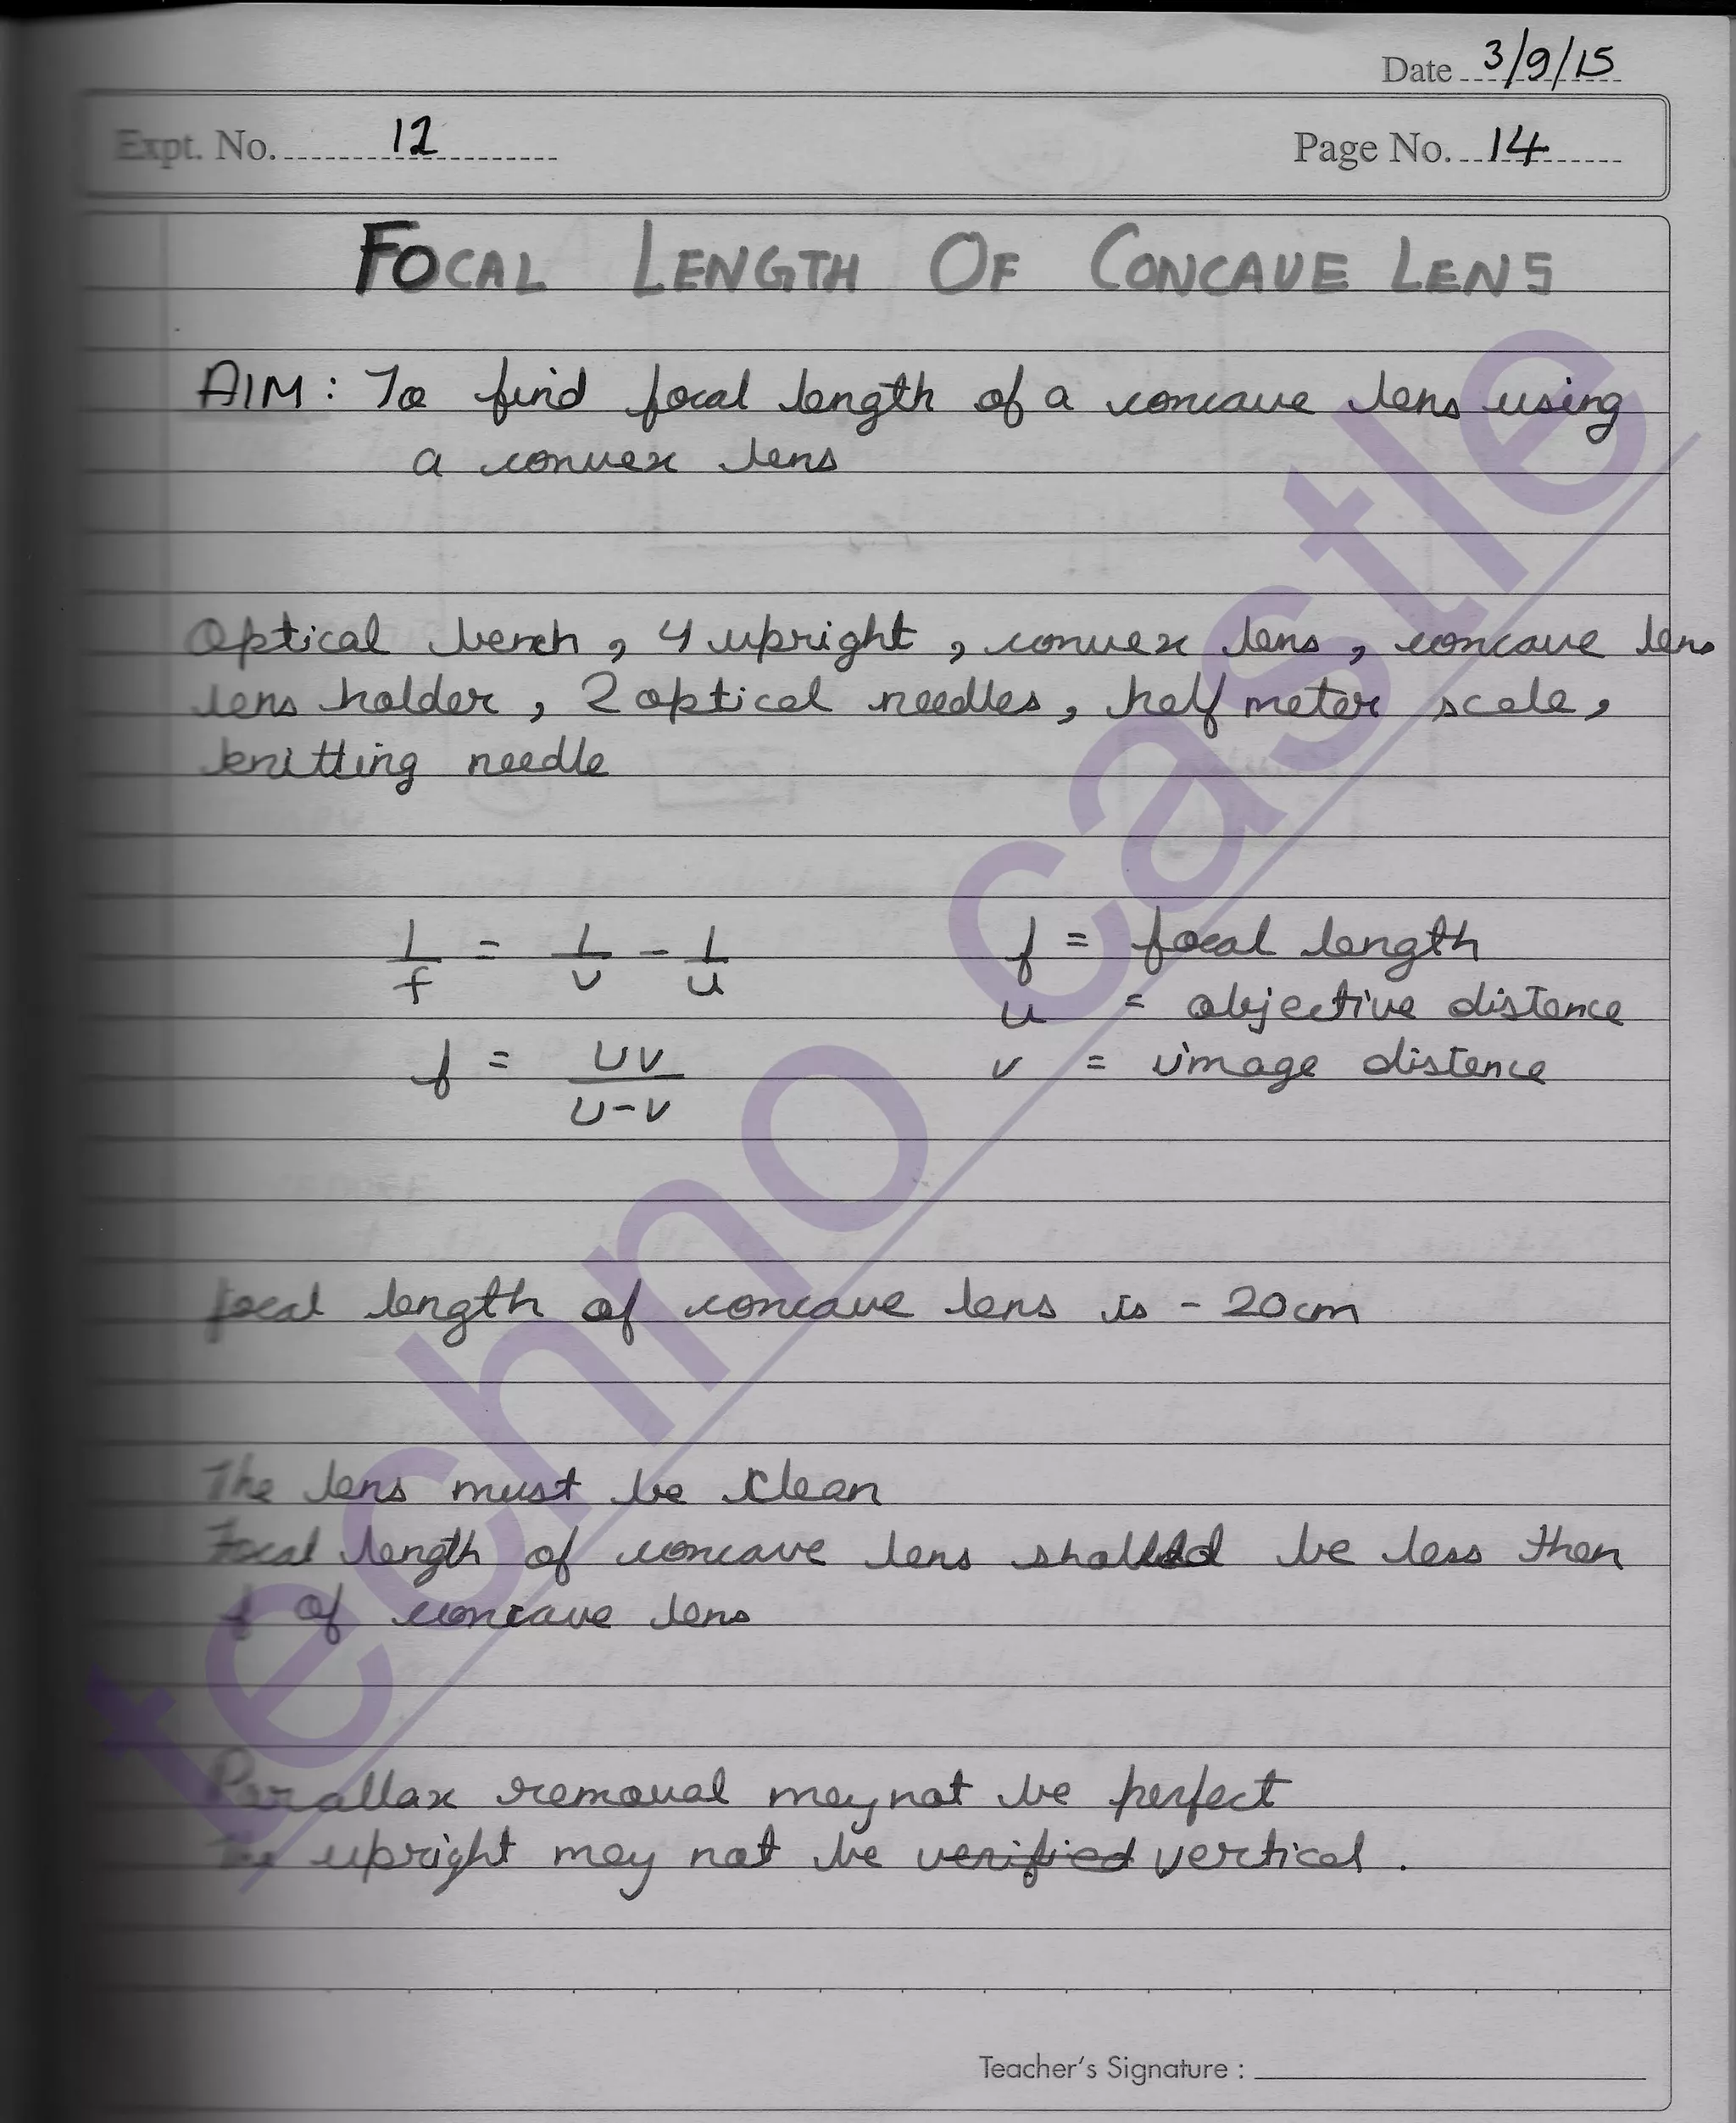 Date 3/9/15
Expt. No. 12 Page No. 14
FOCAL LENGTH OF CONCAVE LENS
AIM: To find focal length of a concave lens using
a convex lens
Optical bench, 4 upright, convex lens, concave lens
lens holder, 2 optical needles, half meter scale,
knitting needle
1/f = 1/v - 1/u f = focal length
u = objective distance
f = UV/U-V v = image distance
focal length of concave lens is - 20cm
The lens must be clean
Focal length of concave lens should be less then
f of concave lens
Parallax removal may not be perfect
The upright may not be verified vertical.
Teacher's Signature :
techno castle